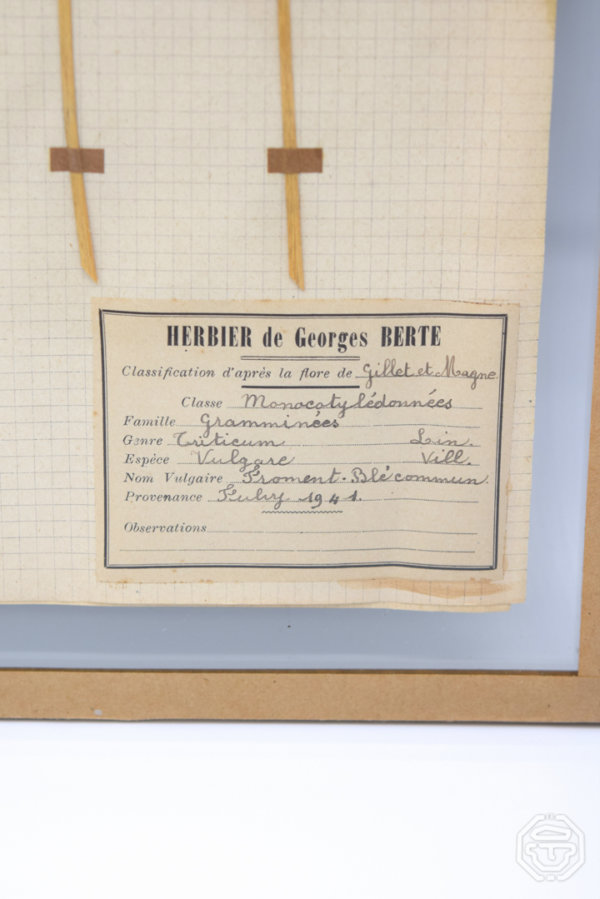 HERBIER de Georges BERTE
Classification d'après la flore de Gillet et Magne
Classe Monocotylédonnées
Famille Gramminées
Genre Triticum Lin.
Espèce Vulgare Vill.
Nom Vulgaire Froment. Blé commun
Provenance 1941.
Observations